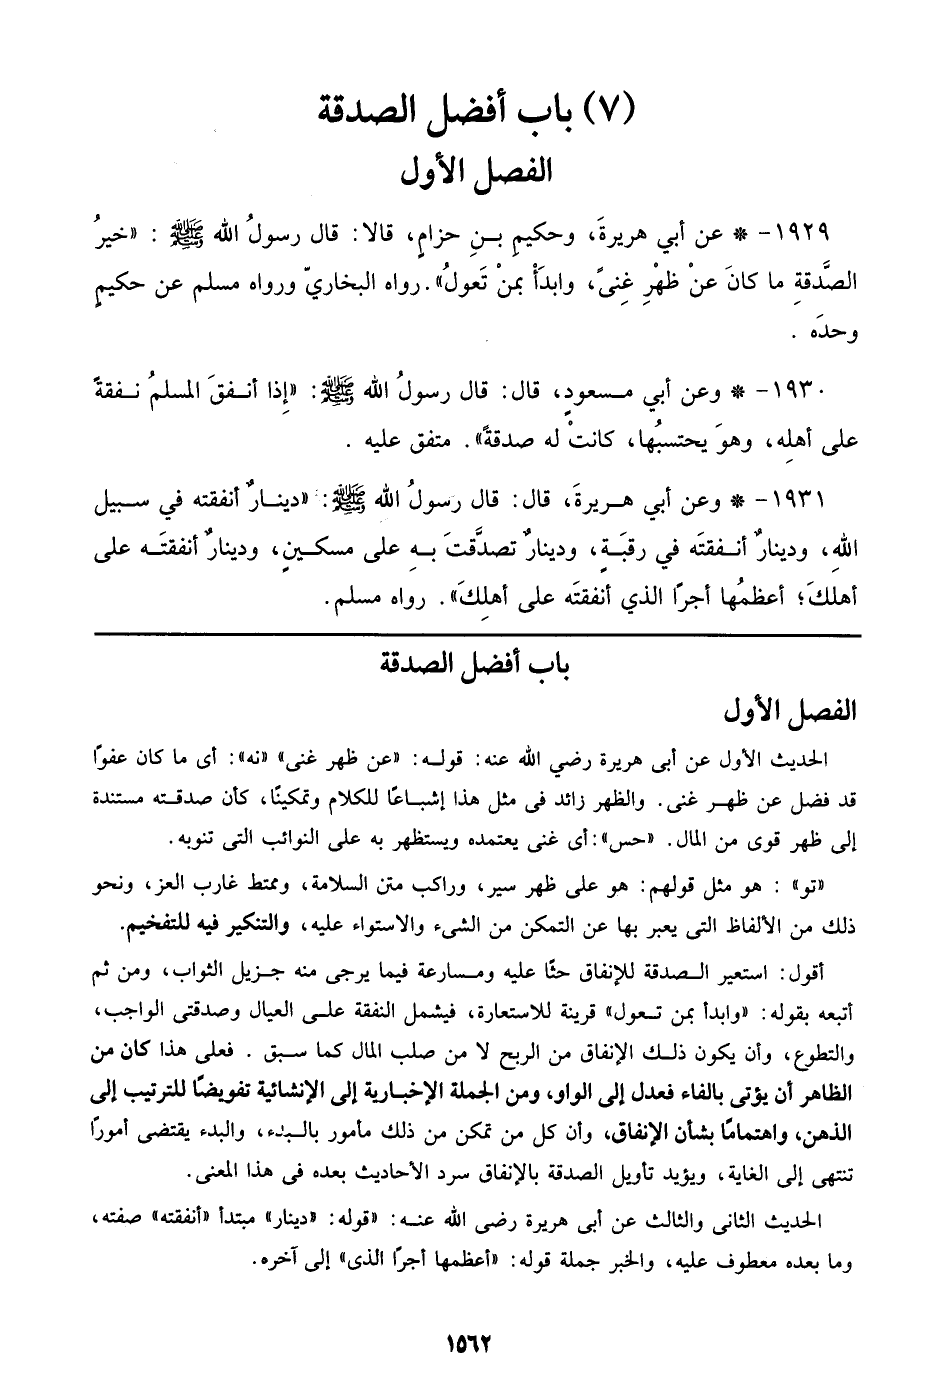 (٧) باب أفضل الصدقة
الفصل الأول
١٩٢٩- * عن أبي هريرةَ، وحكيمِ بـنِ حزامٍ، قالا: قال رسولُ الله ﷺ : «خيرُ
الصَّدقةِ ما كانَ عنْ ظهْرِ غِنىً، وابدَأْ بمنْ تَعولُ». رواه البخاريّ ورواه مسلم عن حكيمٍ
وحدَه .
١٩٣٠- * وعن أبي مـسعودٍ، قال: قال رسولُ الله ﷺ: «إِذا أنـفقَ المسلمُ نـفقةً
على أهلِه، وهوَ يحتسبُها، كانتْ له صدقةً». متفق عليه .
١٩٣١- * وعن أبي هـريرةَ، قال: قال رسولُ الله ﷺ: «دينـارٌ أنفقته في سـبيل
اللهِ، ودينارٌ أنـفقتَه في رقبَـةٍ، ودينارٌ تصدَّقتَ بـهِ على مسكـينٍ، ودينارٌ أنفقتَـه على
أهلكَ؛ أعظمُها أجرًا الذي أنفقتَه على أهلِكَ». رواه مسلم.
باب أفضل الصدقة
الفصل الأول
الحديث الأول عن أبى هريرة رضي الله عنه: قولـه: «عن ظهر غنى» «نه»: أى ما كان عفوًا
قد فضل عن ظهـر غنى. والظهر زائد فى مثل هذا إشبـاعًا للكلام وتمكينًا، كأن صدقـته مستندة
إلى ظهر قوى من المال. «حس»: أى غنى يعتمده ويستظهر به على النوائب التى تنوبه.
«تو» : هو مثل قولهم: هو على ظهر سير، وراكب متن السلامة، وممتط غارب العز، ونحو
ذلك من الألفاظ التى يعبر بها عن التمكن من الشىء والاستواء عليه، والتنكير فيه للتفخيم.
أقول: استعير الـصدقة للإنفاق حثًا عليه ومـسارعة فيما يرجى منه جـزيل الثواب، ومن ثم
أتبعه بقوله: «وابدأ بمن تـعول» قرينة للاستعارة، فيشمل النفقة علـى العيال وصدقتى الواجب،
والتطوع، وأن يكون ذلـك الإنفاق من الربح لا من صلب المال كما سـبق . فعلى هذا كان من
الظاهر أن يؤتى بالفاء فعدل إلى الواو، ومن الجملة الإخبـارية إلى الإنشائية تفويضًا للترتيب إلى
الذهن، واهتمامًا بشأن الإنفاق، وأن كل من تمكن من ذلك مأمور بالـبدء، والبدء يقتضى أمورًا
تنتهى إلى الغاية، ويؤيد تأويل الصدقة بالإنفاق سرد الأحاديث بعده فى هذا المعنى.
الحديث الثانى والثالث عن أبى هريرة رضى الله عنـه: «قوله: «دينار» مبتدأ «أنفقته» صفته،
وما بعده معطوف عليه، والخبر جملة قوله: «أعظمها أجرًا الذى» إلى آخره.
١٥٦٢